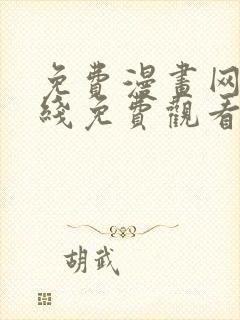 免費漫畫网
綫免費觀看
胡武